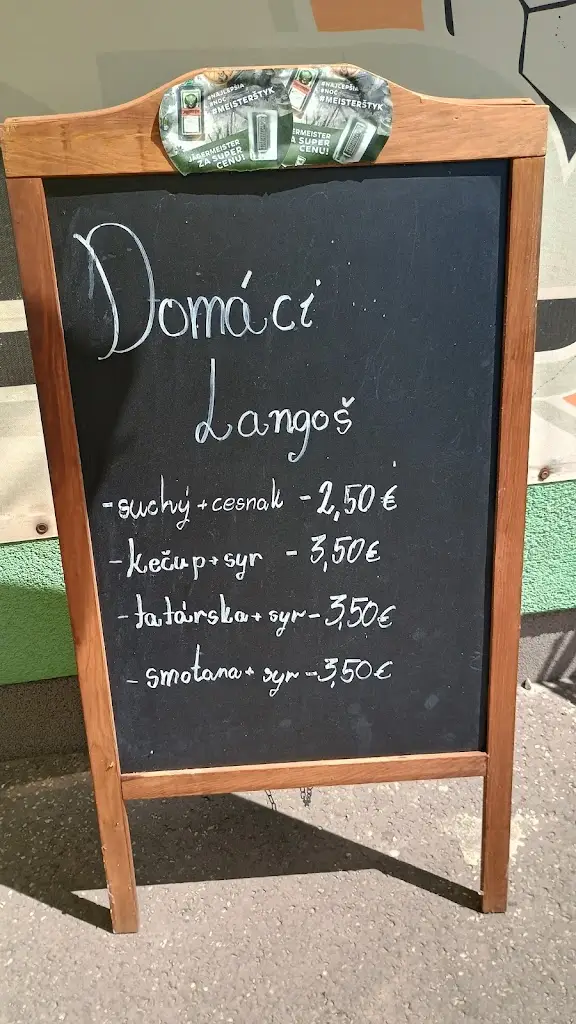 #NAJLEPŠIA
#NOC
#MEISTERŠTYK
JÄGERMEISTER
ZA SUPER
CENU!
#NAJLEPŠIA
#NOC
#MEISTERŠTYK
JÄGERMEISTER
ZA SUPER
CENU!
Domáci
Langoš
- suchý + cesnak - 2,50 €
- kečup + syr - 3,50 €
- tatárska + syr - 3,50 €
- smotana + syr - 3,50 €